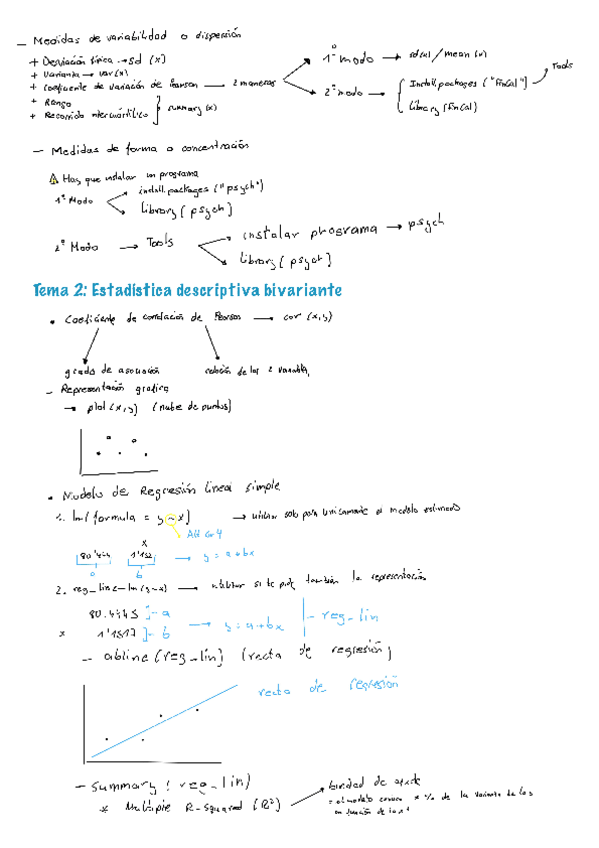 – Medidas de variabilidad o dispersión
+ Desviación típica → sd (x)
+ Varianza → var (x)
+ Coeficiente de variación de Pearson → 2 maneras
1º modo → sd(x) / mean (x)
2º modo → Install.packages ("FinCal") Tools
Library (FinCal)
+ Rango
+ Recorrido intercuartílico } summary (x)
– Medidas de forma o concentración
⚠ Hay que instalar un programa
1º Modo
install.packages ("psych")
Library ( psych )
2º Modo → Tools
instalar programa → psych
Library ( psych )
Tema 2: Estadística descriptiva bivariante
• Coeficiente de correlación de Pearson → cor (x,y)
grado de asociación
relación de las 2 variables
– Representación grafica
→ plot (x,y) (nube de puntos)
• Modelo de Regresión lineal simple
1. lm ( formula = y ~ x ) → utilizar solo para unicamente el modelo estimado
Alt Gr 4
x
80'444 1'152 → y = a+bx
a b
2. reg_lin <- lm (y~x) → utilizar si te pide también la representación
80.4445 ]- a
x 1'1517 ]- b → y = a+bx – reg_lin
– abline (reg_lin) (recta de regresión)
recta de regresión
– summary ( reg_lin)
* Multiple R-Squared (R²)
bondad de ajuste
= el modelo % de la varianza de las
en función de